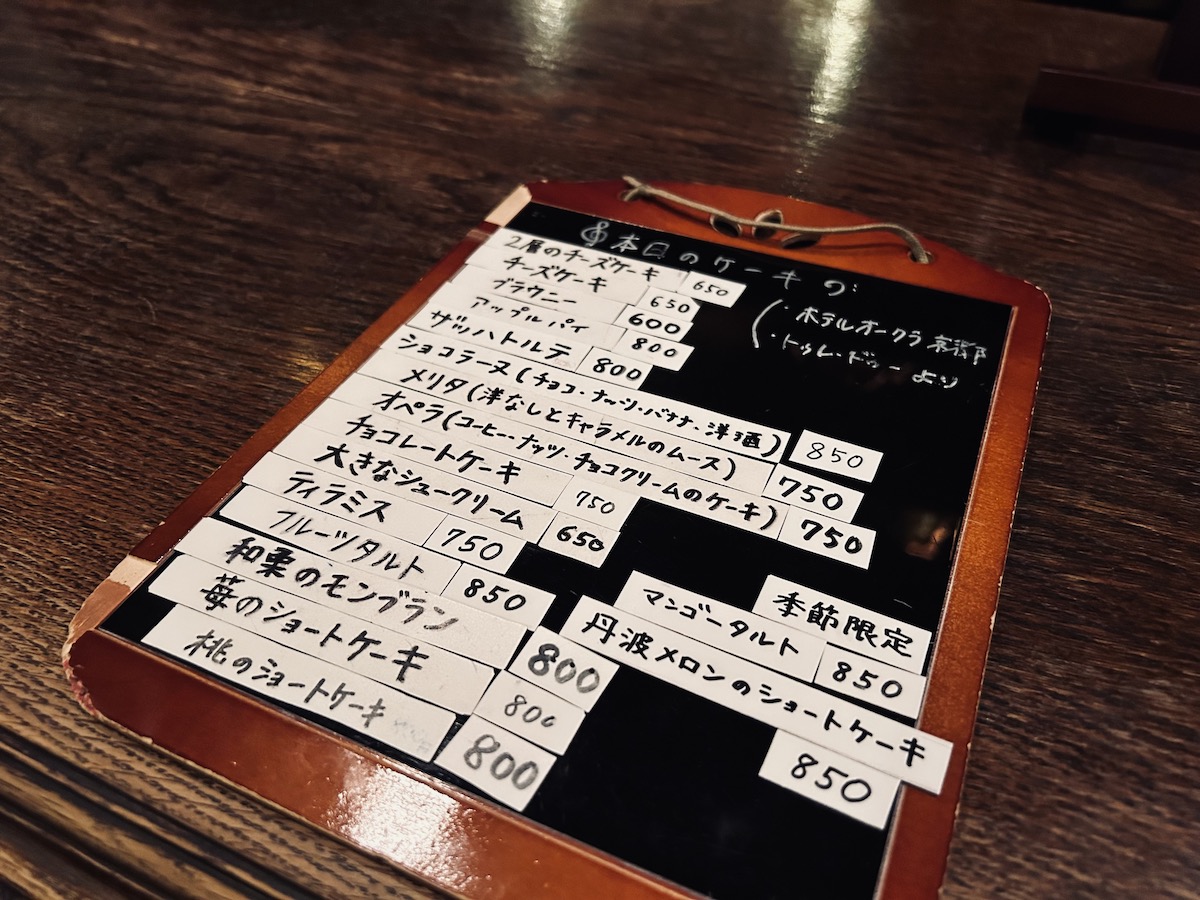 本日のケーキ
・ホテルオークラ京都
・トゥレ・ドゥーより
2層のチーズケーキ 650
チーズケーキ 650
ブラウニー 600
アップルパイ 800
ザッハトルテ 800
ショコラーヌ(チョコ・ナッツ・バナナ、洋酒) 850
メリタ(洋なしとキャラメルのムース) 750
オペラ(コーヒー・ナッツ・チョコクリームのケーキ) 750
チョコレートケーキ 750
大きなシュークリーム 650
ティラミス 750
フルーツタルト 850
和栗のモンブラン 800
苺のショートケーキ 800
桃のショートケーキ 800
季節限定
マンゴータルト 850
丹波メロンのショートケーキ 850